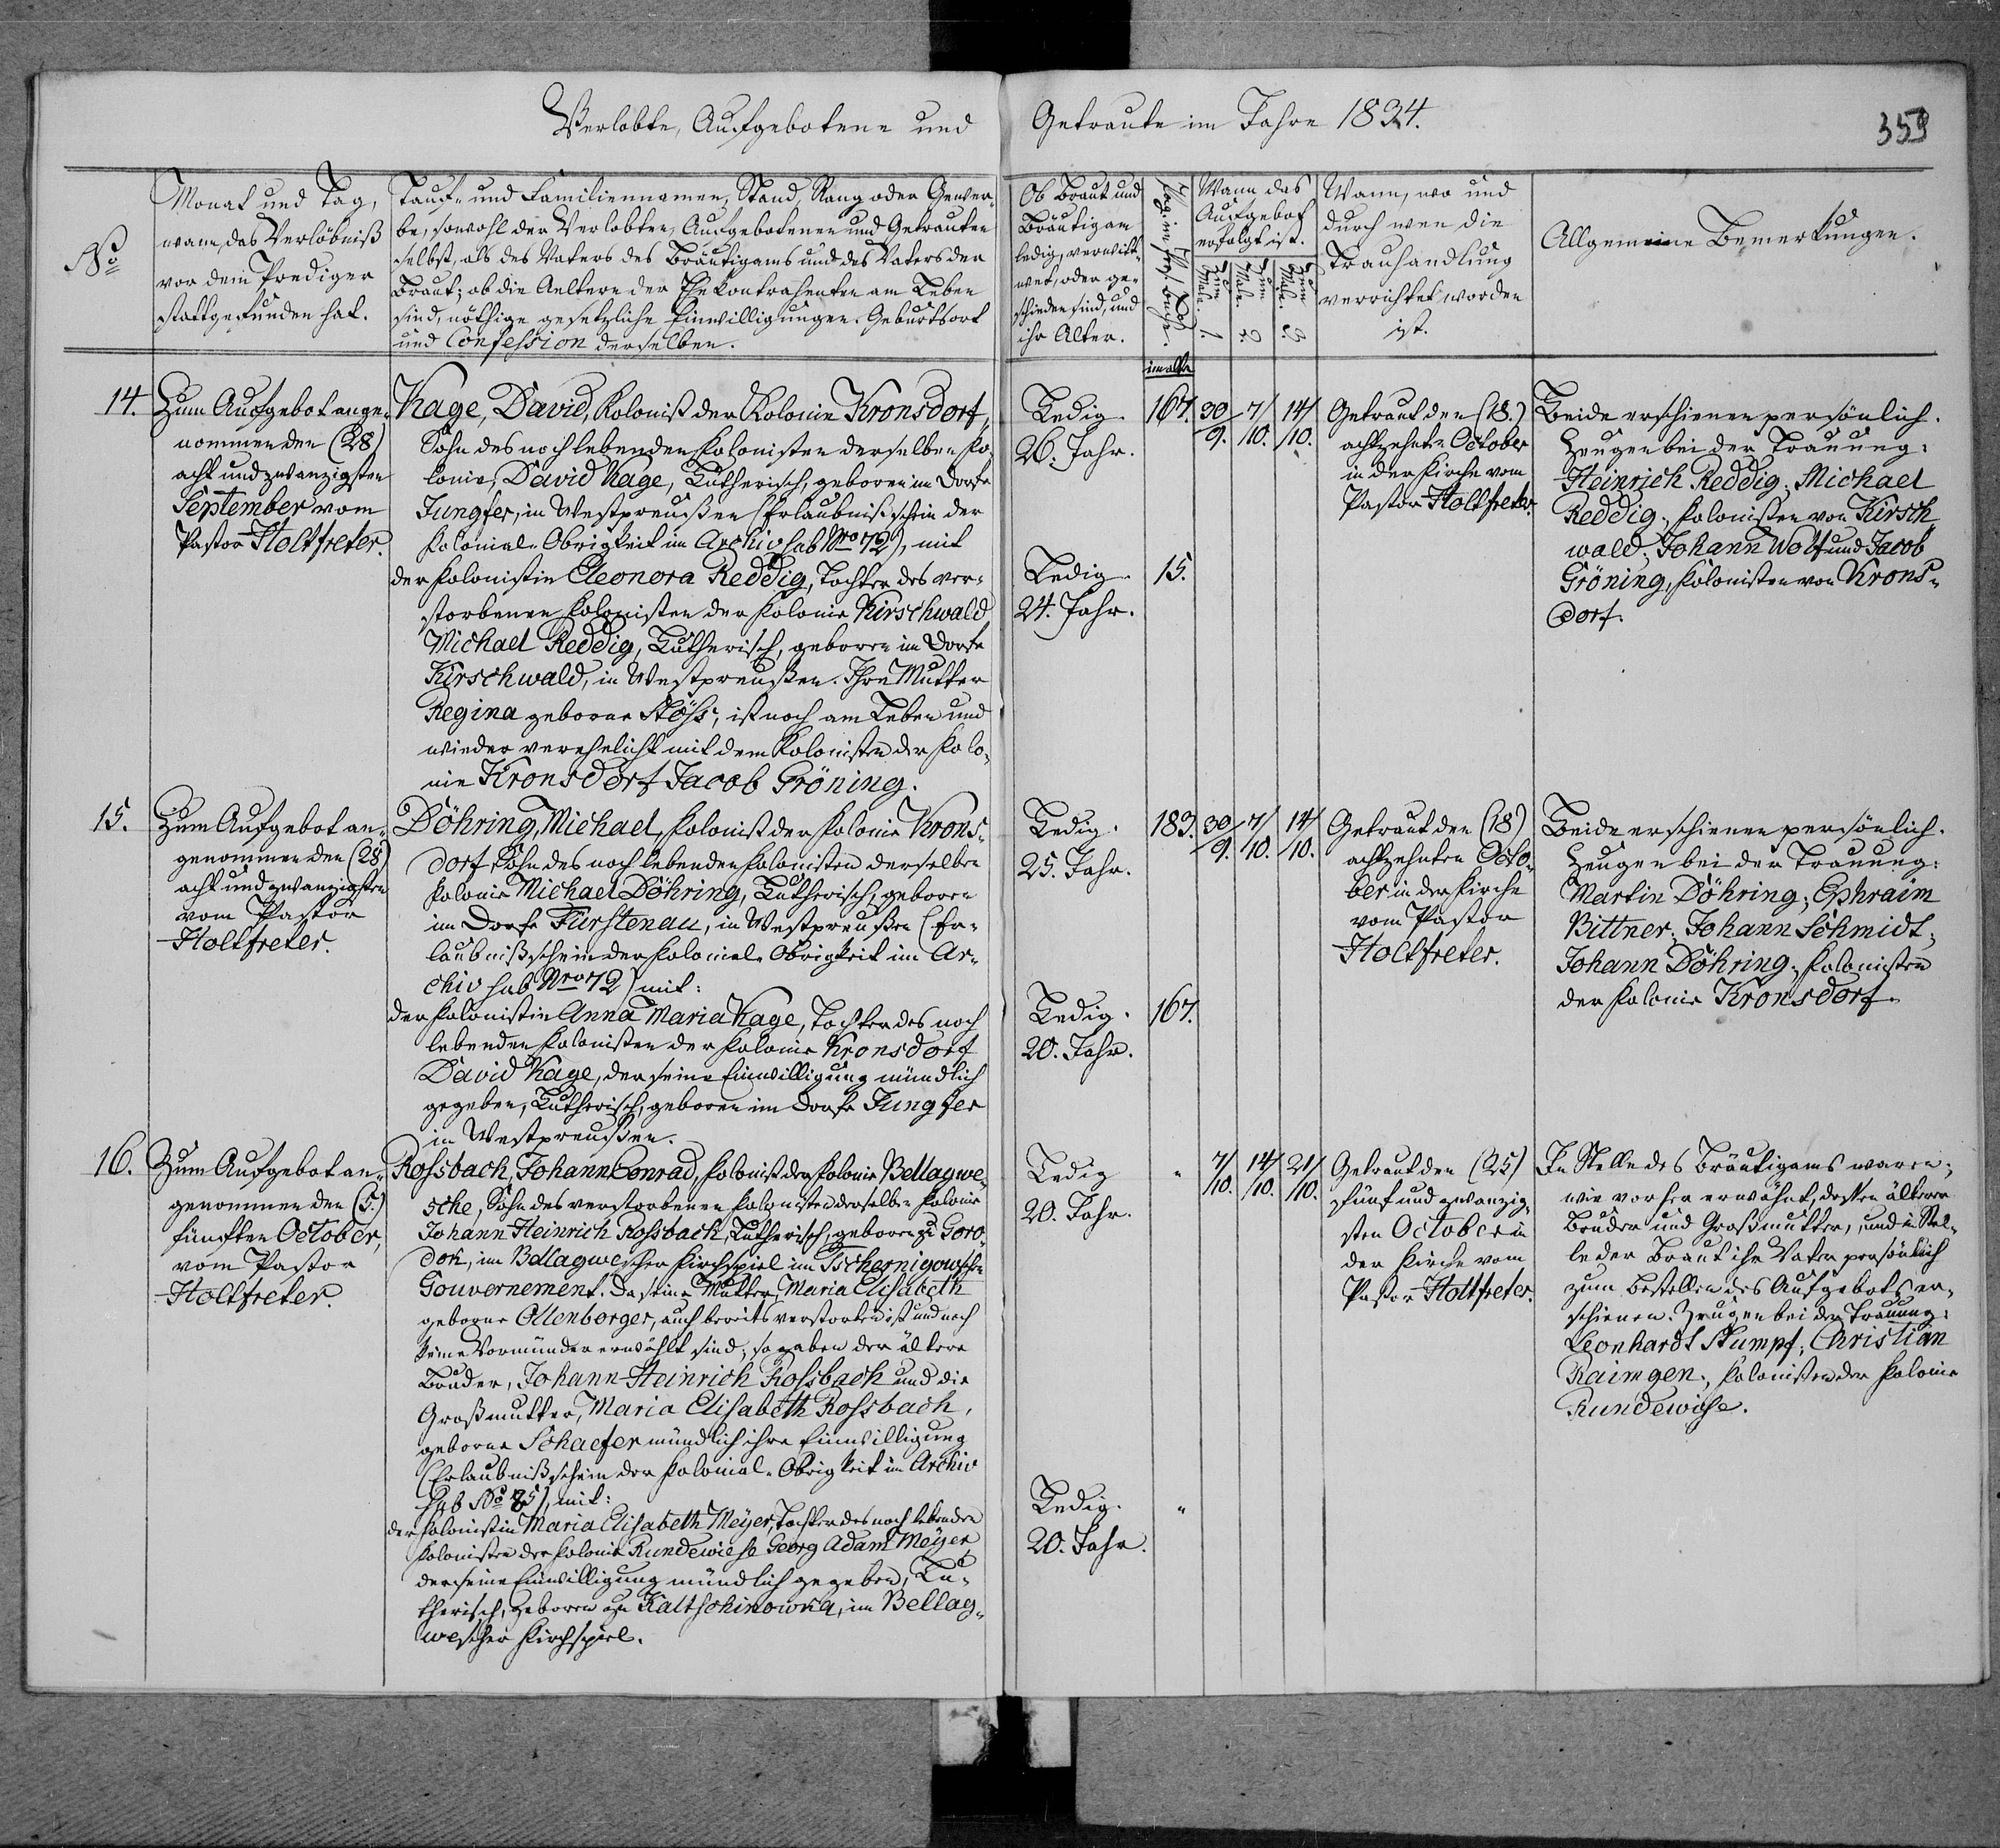 Verlobte, Aufgebotene und Getraute im Jahre 1834.
353
No
Monat und Tag,
wann das Verlöbniß
vor dem Prediger
stattgefunden hat.
Tauf- und Familiennamen, Stand, Rang oder Gewer-
be, sowohl der Verlobten, Aufgebotenen und Getrauten
selbst, als des Vaters des Bräutigams und des Vaters der
Braut; ob die Aeltern der Ehekontrahenten am Leben
sind, nöthige gesetzliche Einwilligungen. Geburtsort
und Confession derselben.
Ob Braut und
Bräutigam
ledig, verwitt-
wet, oder ge-
schieden sind, und
ihr Alter.
Wann das
Aufgebot
erfolgt ist.
Zum 1. Male.
Zum 2. Male.
Zum 3. Male.
Wann, wo und
durch wen die
Trauhandlung
verrichtet worden
ist.
Allgemeine Bemerkungen.
14.
Zum Aufgebot ange-
nommen den (28)
acht und zwanzigsten
September vom
Pastor Holtfreter.
Kage, David, Kolonist der Kolonie Kronsdorf,
Sohn des noch lebenden Kolonisten derselben Ko-
lonie, David Kage, Lutherisch, geboren im Dorfe
Jungfer, in Westpreußen (Erlaubnißschein der
Kolonial-Obrigkeit im Archiv sub Nro 72), mit
der Kolonistin Eleonora Reddig, Tochter des ver-
storbenen Kolonisten der Kolonie Kirschwald
Michael Reddig, Lutherisch, geboren im Dorfe
Kirschwald, in Westpreußen. Ihre Mutter
Regina geborne Stöss, ist noch am Leben und
wieder verehelicht mit dem Kolonisten der Kolo-
nie Kronsdorf Jacob Gröning.
Ledig.
26. Jahr.
Ledig.
24. Jahr.
im alte
167.
15.
30/9.
7/10.
14/10.
Getraut den (18.)
achtzehnten October
in der Kirche vom
Pastor Holtfreter.
Beide erschienen persönlich.
Zeugen bei der Trauung:
Heinrich Reddig; Michael
Reddig, Kolonisten von Kirsch
wald; Johann Wolf und Jacob
Gröning, Kolonisten von Krons-
dorf.
15.
Zum Aufgebot an-
genommen den (28)
acht und zwanzigsten
vom Pastor
Holtfreter.
Döhring, Michael, Kolonist der Kolonie Krons-
dorf, Sohn des noch lebenden Kolonisten derselben
Kolonie Michael Döhring, Lutherisch, geboren
im Dorfe Fürstenau, in Westpreußen (Er-
laubnißschein der Kolonial-Obrigkeit im Ar-
chiv sub Nro 72) mit:
der Kolonistin Anna Maria Kage, Tochter des noch
lebenden Kolonisten der Kolonie Kronsdorf
David Kage, der seine Einwilligung mündlich
gegeben, Lutherisch, geboren im Dorfe Jungfer
in Westpreußen.
Ledig.
25. Jahr.
Ledig.
20. Jahr.
183.
167.
30/9.
7/10.
14/10.
Getraut den (18)
achtzehnten Octo-
ber in der Kirche
vom Pastor
Holtfreter.
Beide erschienen persönlich.
Zeugen bei der Trauung:
Martin Döhring; Ephraim
Bittner; Johann Schmidt;
Johann Döhring; Kolonisten
der Kolonie Kronsdorf.
16.
Zum Aufgebot an-
genommen den (5.)
fünften October,
vom Pastor
Holtfreter.
Rossbach, Johann Conrad, Kolonist der Kolonie Bellagwe-
sche, Sohn des verstorbenen Kolonisten derselben Kolonie
Johann Heinrich Rossbach, Lutherisch, geboren zu Goro-
dok, im Bellagweschen Kirchspiel im Tschernigowschen
Gouvernement. Da seine Mutter, Maria Elisabeth
geborne Ollenborger, auch bereits verstorben ist und noch
keine Vormünder erwählt sind; so gaben der ältere
Bruder, Johann Heinrich Rossbach und die
Großmutter, Maria Elisabeth Rossbach,
geborne Schaefer mündlich ihre Einwilligung
(Erlaubnißschein der Kolonial-Obrigkeit im Archiv
sub No 85), mit:
der Kolonistin Maria Elisabeth Meyer, Tochter des noch lebenden
Kolonisten der Kolonie Rundewiese Georg Adam Meyer,
der seine Einwilligung mündlich gegeben, Lu-
therisch, geboren zu Kaltschinowka, im Bellag-
weschen Kirchspiel.
Ledig
20. Jahr.
Ledig.
20. Jahr.
"
"
7/10.
14/10.
21/10.
Getraut den (25)
fünf und zwanzig-
sten October in
der Kirche vom
Pastor Holtfreter.
In Stelle des Bräutigams waren,
wie vorher erwähnt, dessen älterer
Bruder und Großmutter, und in Stel-
le der Braut ihr Vater persönlich
zum Bestellen des Aufgebots er-
schienen. Zeugen bei der Trauung:
Leonhardt Stumpf; Christian
Raimgen; Kolonisten der Kolonie
Rundewise.